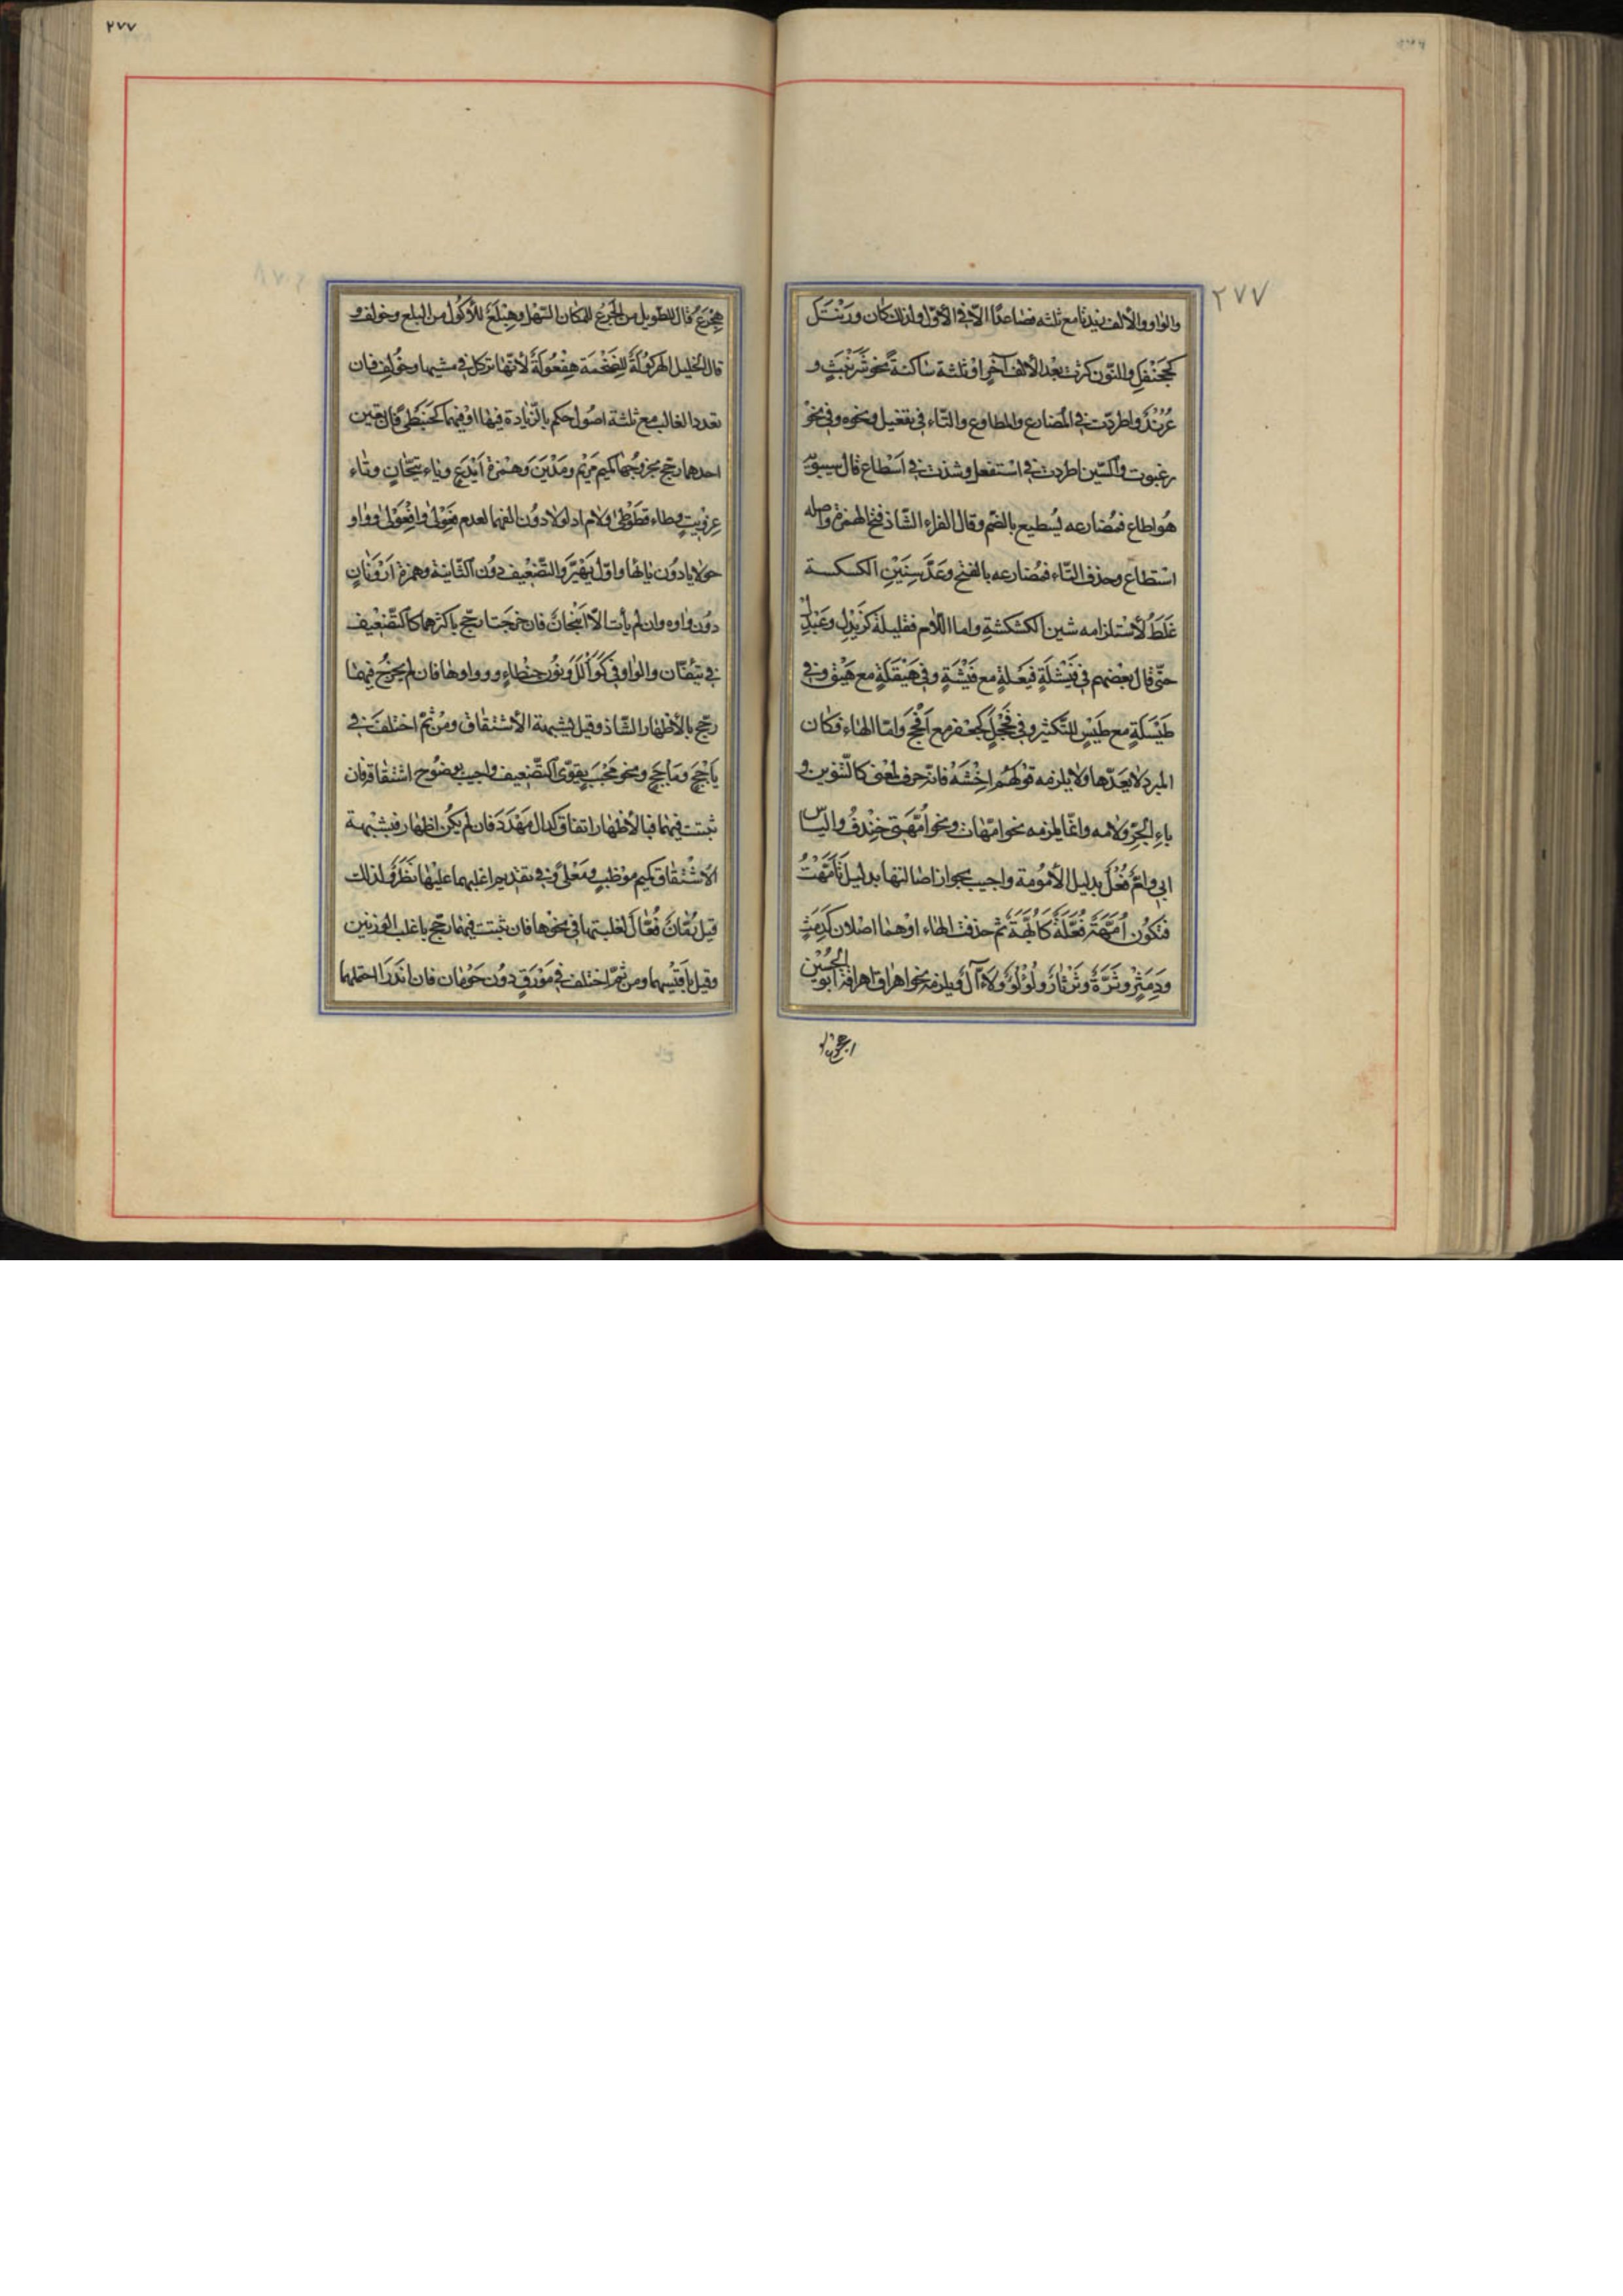 ٢٧٧
والواو والالف زیدتا مع ثلثه فصاعدًا الّا فی الاوّل ولذلك كان وَرَنْتَل
كَجَحَنْفَلٍ والنّون كثرت بَعْدَ الألف آخرًا وثالثة ساكنةً نحو شَرَنْبَثٍ و
عُرُنْدٍ واطردت فی المُضارع والمطاوع والتّاء فی تفعیل ونحوه وفی نحو
رغبوت والسّین اطردت فی استفعل وشذت فی اَسْطاع قال سیبویه
هو اطاع فمُضارعه یُسطیع بالضّم وقال الفراء الشّاذ فتح الهمزة واصله
استطاع وحذف التّاء فمُضارعه بالفتح وعَدُّ سِینِ الكسكسة
غَلَطٌ لأستلزامه شین الكشكشةِ واما اللّام فقلیلة كَزَیْدَلٍ وعَبْدَلٍ
حتّی قال بعضهم فی فَیْشَلَةٍ فَیْعَلة مع فَیْشَةٍ وفی هَیْقَلَةٍ مع هَیْقٍ وفی
طَیْسَلَةٍ مع طَیْسٍ للتّكثیر وفی فَحْجَلٍ كَجَعْفر مع اَفْحَجَ وامّا الهاء فكان
المبرد لا یعدّها ولا یلزمه قولهم اخْشَهْ فانّه حرف لمعنی كالتّنوین و
باءِ الجرّ ولامه وانّما یلزمه نحو امّهات ونحو اُمَّهَتِی خِنْدِفُ والیاس
ابی واُمّ فُعْلٌ بدلیل الأمُومة واجیب بجواز اصالتها بدلیل تَأَمَّهَتْ
فتكُون اُمَّهَة فُعَّلَةً كاُبَّهَةٍ ثم حذفت الهاء اوْ هُما اصلان كَدَمِثٍ
ودِمَثْرٍ وثَرَّةٍ وثَرْثارٍ ولُؤْلُؤٍ ولَأّآلٍ ویلزمه نحو اهراق اهراقة ابو الحُسَیْن
٢٧٧
هِجْرَعٌ قال للطّویل من الجَرَعِ للمكان السّهل وهِبْلَعٌ للأكُول من البلع وخولف و
قال الخلیل الهِركَوْلَةُ للضّخْمَة هِفْعَوْلَةٌ لأنّها تركل فی مشیها وخُولِف فان
تعدد الغالب مع ثلثة اصُول حكم بالزّیادة فیها او فیهما كحَبَنْطًی فان تعین
احدهما رجح بخروجُهما كمیم مَرْیَم ومَدْیَنَ وهَمْزة اَیْدَعٍ ویاء تَیَّحانٍ وتاء
عِزْوِیتٍ وطاء قَطَوْطًی ولام اِدْلَوْلا دوُن الفهما لعدم فَعَوْلی وافْعَوْلی وواو
حَوْلایا دُون یائها واوّل یَهْیَرَّ والتّضعیف دوُن الثّانیة وهمزة اَرْوَنانٍ
دوُن واوه وان لم یأت الّا اَنْبَجانٌ فان خرجتا رجّح باكثرهما كالتّضعیف
فی تَئِفّان والواو فی كَوَأْلَلٍ ونُون حِنْطَاوٍ وواوها فان لم یخرُج فیهما
رجّح بالأظهار الشّاذ وقیل بشبهة الأشتقاق ومن ثَمَّ اختلف فی
یَأْجَجَ ومَأْجَجَ ونحو مَحْبَبٍ یقوّی الضّعیف واجیب بوضوح اشتقاقه فان
ثبتت فیهما فبالأظهار اتفاقًا كدال مَهْدَدَ فان لم یكن اظهار فبشبهة
الأشتقاق كمیم مَوْظَبٍ ومَعْلًی وفی تقدیم اغلبهما علیها نَظَرٌ ولذلك
قیل رُمّانٌ فُعّالٌ لغلبتها فی نحوها فان ثبتت فیهما رجّح باغلب الوزنین
وقیل باَقْیَسِهما ومن ثمّ اختلف فی مَوْرَقٍ دوُن حَوْمان فان نَدَرا احتملهما